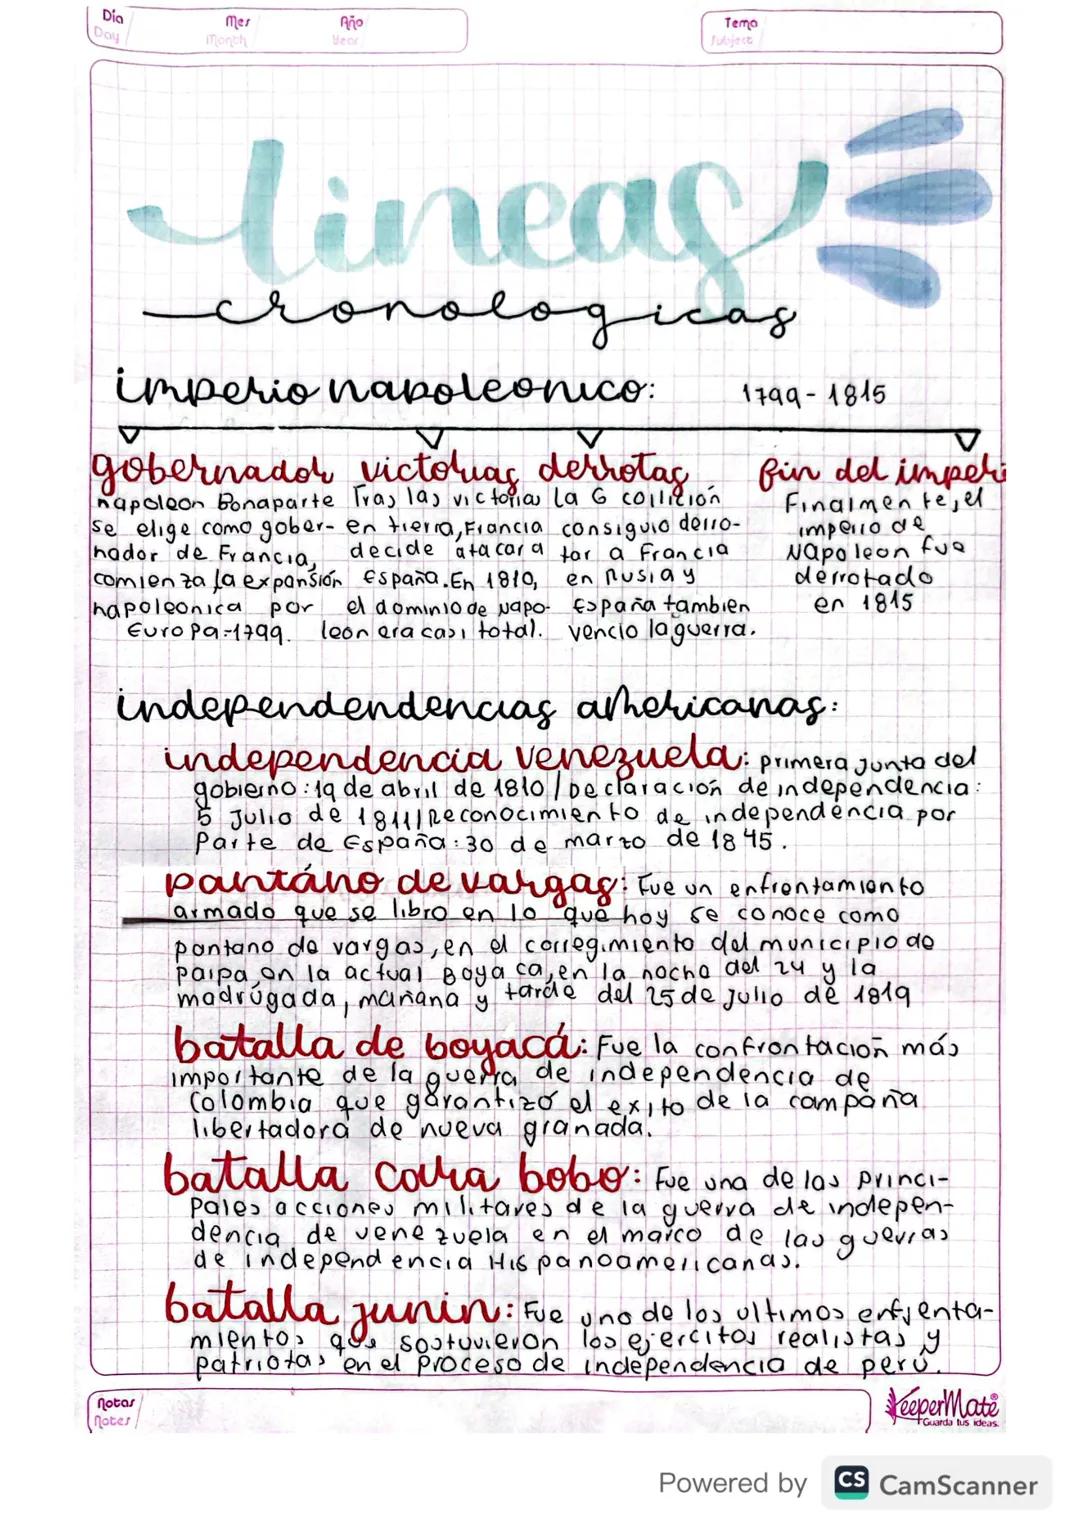 Día
Day
Mes
Month
Año
Year
Tema
Subject
lineas
cronologicas
imperio napoleonico: 1799-1815
gobernador victorias derrotas fin del imperi
napoleon Bonaparte Tras las victorias La 6 colilición Finalmente, el
se elige como gober- en tierra, Francia consiguio derro- imperio de
nador de Francia, decide atacar a tar a Francia Napoleon fue
comienza la expansión España. En 1810, en Rusia y derrotado
napoleonica por el dominio de Napo- España tambien en 1815
Europa-1799. leon era casi total. vencio la guerra.
independendencias americanas:
independencia venezuela: primera junta del
gobierno: 19 de abril de 1810/Declaración de independencia:
5 Julio de 1811/Reconocimiento de independencia por
Parte de España: 30 de marzo de 1845.
pantáno de vargas: Fue un enfrontamiento
armado que se libro en lo que hoy se conoce como
pantano de vargas, en el corregimiento del municipio de
paipa en la actual Boyaca, en la noche del 24 y la
madrúgada, mañana y tarde del 25 de Julio de 1819
batalla de boyacá: Fue la confrontación más
importante de la guerra de independencia de
Colombia que garantizó el exito de la campaña
libertadora de nueva granada.
batalla cara bobo: Fue una de las princi-
Pales acciones militares de la guerra de indepen-
dencia de venezuela en el marco de las guerras
de independencia Hispanoamericanas.
batalla junin: Fue uno de los ultimos enfrenta-
mientos que sostuvieron los ejercitos realistas y
patriotas en el proceso de independencia de perú.
Notas
Notes
KeeperMate®
Guarda tus ideas.
Powered by CS CamScanner